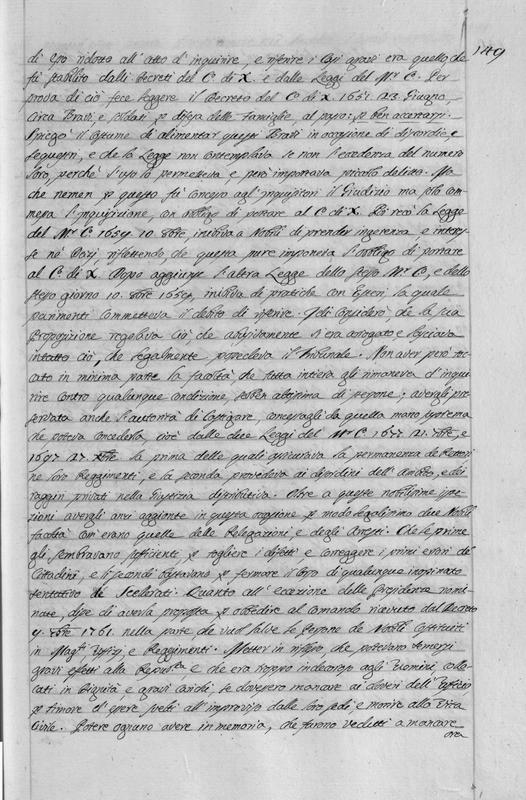 149
di esso ridotto all' atto d' inquirire, e riferire i Casi gravi era quello, che
fù stabilito dalli Decreti del C.º di X. e dalle Leggi del M.r C.º Per
prova di ciò fece leggere il Decreto del C.º di X. 1651. 23. Giugno,
circa Bravi, e soldati p difesa delle Famiglie, al passo: p ben accertarsi.
Spiegò il Costume di alimentar questi Bravi in occasione di discordie, e
seguestri, e che la Legge non contemplava se non l' eccedenza del numero
loro, perchè l' uso lo permetteva e però importava picciolo delitto. Ma
che nemen p questo fù concesso agl' Inquisitori il Giudizio ma solo com-
messa l' inquisizione, con obbligo di portare al C.º di X. Si recò la Legge
del M.r C.º 1659. 10. 8bre, inibiva a Nobili di prender ingerenza e interes-
se nè Dazj, riflettendo che questa pure imponeva l' obbligo di portare
al C.º di X. Dopo aggiunse l' altra Legge dello stesso M.r C.º, e dello
stesso giorno 10. 8bre 1659, inibiva di pratiche con Esteri, la quale
parimenti commetteva il debito di riferire. Indi considerò che la sua
Proposizione regolava ciò, che abusivamente s' era arrogato, e lasciava
intatto ciò, che legalmente possedeva il Tribunale. Non aver però toc-
cato in minima parte la facoltà, che tutta intiera gli rimaneva d' inqui-
rire contro qualunque condizione, sesso abbenche di persone; avergli pre-
servata anche l' autorità di castigare, concessagli da quella mano suprema
ne poteva concederla, cioè dalle due Leggi del M.r C.º 1677. 21. 7bre, e
1697. 27. Xbre la prima delle quali assicurava la permanenza de Rettori
ne loro Reggimenti, e la seconda provedeva ai disordini dell' Ambito, e dei
raggiri privati nella Giustizia distributiva. Oltre a queste nobilissime ispe-
zioni avergli anzi aggionte in questa occasione p modo legalissimo due Nobili
facoltà com' erano quelle delle Relegazioni, e degli Arresti. Che le prime
gli sembravano sufficienti p togliere i difetti e correggere i primi errori de'
Cittadini, e li secondi bastavano p fermare il corso di qualunque inopinato
tentativo de Scellerati. Quanto all' eccezione delle Presidenze nomi-
nate, disse di averla proposta p obbedire al comando ricevuto dal Decreto
9. 7bre 1761. nella parte che vuol salve le Persone de Nobili costituiti
in Mag.ti, Uffizj, e Reggimenti. Metter in riflesso, che potevano temersi
gravi effetti alla Repub.ca, e che era troppo indecoroso agli Uomini collo-
cati in Dignità e gravi carichi, se dovessero mancare ai doveri dell' Uffizio
p timore d' essere svelti all' improviso dalle loro sedi e morire alla Vita
Civile. Potere ognuno avere in memoria, che furono veduti a mancare
ora